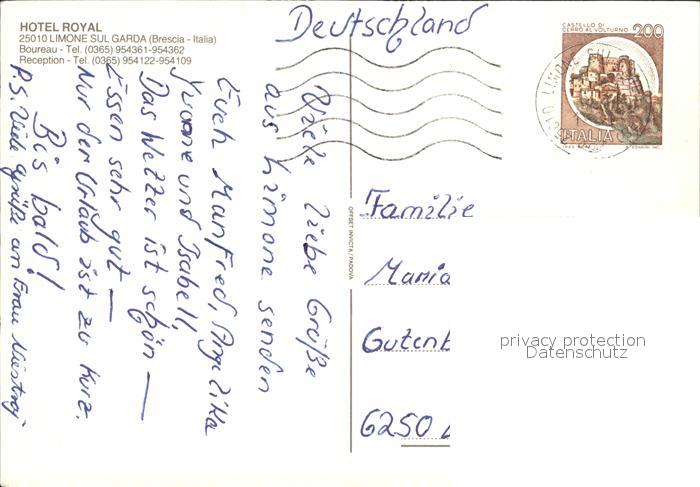 HOTEL ROYAL
25010 LIMONE SUL GARDA (Brescia - Italia)
Boureau - Tel. (0365) 954361-954362
Reception - Tel. (0365) 954122-954109
Deutschland
CASTELLO DI
CERRO AL VOLTURNO
200
ITALIA
Viele liebe Grüße
aus Limone senden
Euch Manfred, Angelika
Yvonne und Isabell,
Das Wetter ist schön —
Essen sehr gut —
Nur der Urlaub ist zu kurz.
Bis bald!
P.S. Viele Grüße an Frau
OFFSET INVICTA / PADOVA
Familie
Maria
Gutenb
6250 L
privacy protection
Datenschutz